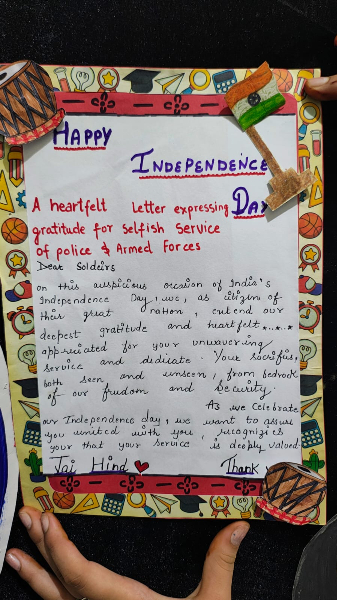 Happy
Independence
Day
A heartfelt Letter expressing
gratitude for Selfish Service
of police & Armed Forces
Dear Soldeirs
on this auspicious occasion of India's
Independence Day, we, as citizens of
this great nation, extend our
deepest gratitude and heartfelt
appriciated for your unwavering
service and dedicate. Your sacrifies,
both seen and unseen, from bedrock
of our freedom and Security.
As we celebrate
our Independence day, we want to assure
you united with you, recognizies
your that your service is deeply valued
Jai Hind
Thank